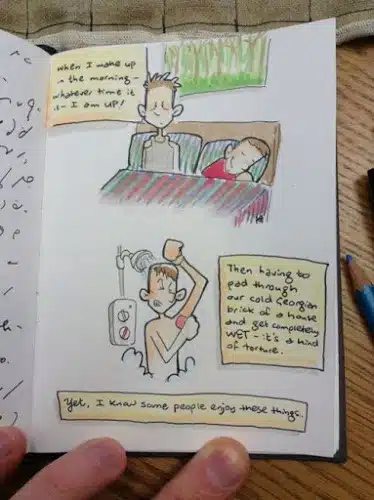 when I wake up
in the morning -
whatever time it
is - I am UP!
Then having to
pad through
our cold Georgian
brick of a house
and get completely
WET - it's a kind
of torture.
Yet, I know some people enjoy these things.